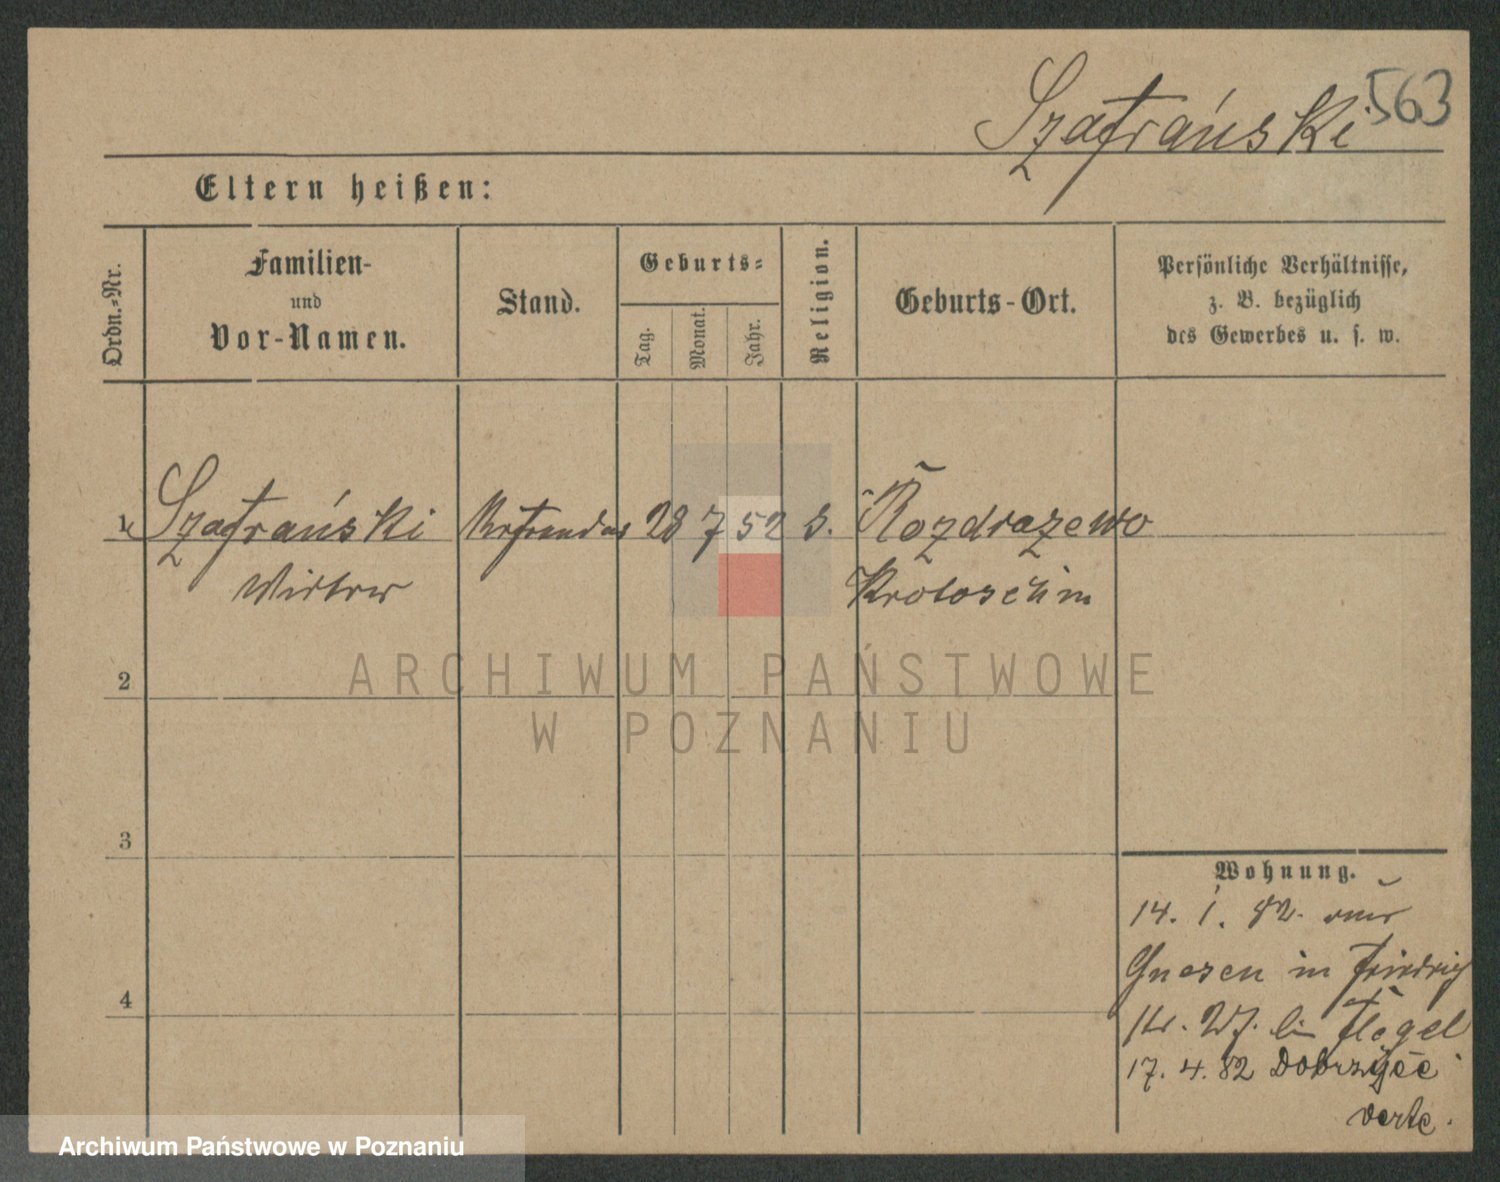 Szafrański 563
Eltern heißen:
Ordn.-Nr.
Familien-
und
Vor-Namen.
Stand.
Geburts-
Tag.
Monat.
Jahr.
Religion.
Geburts-Ort.
Persönliche Verhältnisse,
z. B. bezüglich
des Gewerbes u. s. w.
1 Szafrański Referendar 28 7 52 Rozdrazewo
Victor Krotoschin
2
3
4
Wohnung.
14. 1. 82. aus
Gnesen in Friedrich
Str. 27. bei Flegel
17. 4. 82 Dobrzyce
verte.
ARCHIWUM PAŃSTWOWE
W POZNANIU
Archiwum Państwowe w Poznaniu